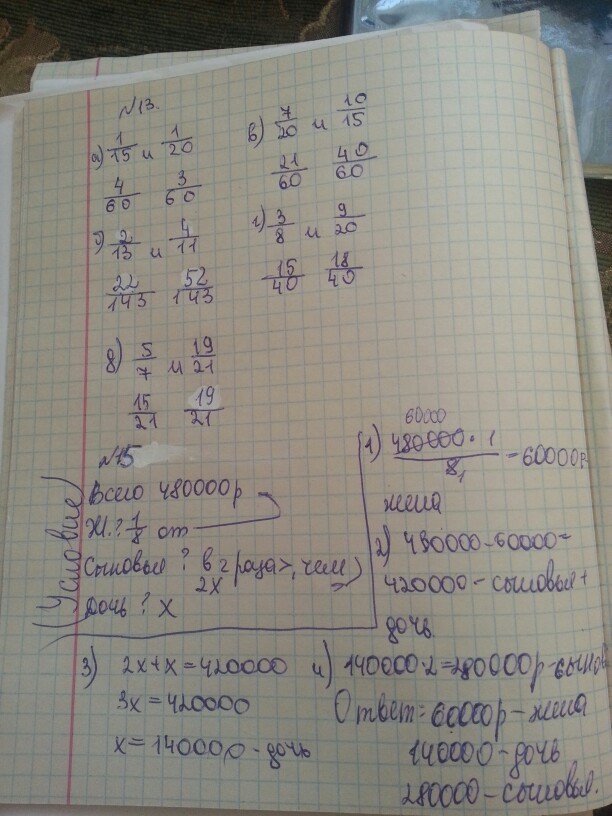 №13.
а) 1/15 и 1/20
4/60 3/60
б) 2/13 и 4/11
22/143 52/143
в) 7/20 и 10/15
21/60 40/60
г) 3/8 и 9/20
15/40 18/40
д) 5/7 и 19/21
15/21 19/21
№15
(Условие)
Всего 480000р
Ж.? 1/8 от
Сыновья ? в 2 раза >, чем
2x
Дочь ? x
1) 480000·1/8 = 60000р
60000 1
жена
2) 480000-60000=
420000 - сыновья +
дочь.
3) 2x+x=420000
3x=420000
x=140000 - дочь
4) 140000·2=280000р - сынов
Ответ: 60000р - жена
140000 - дочь
280000 - сыновья.